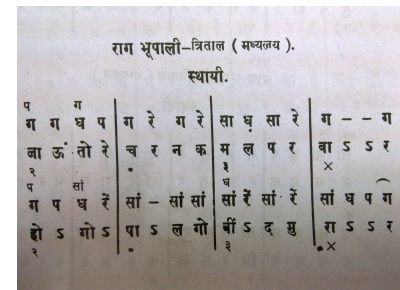 राग भूपाली-त्रिताल ( मध्यलय ).
स्थायी.
प ग
ग ग ध प | ग रे ग रे | सा ध़ सा रे | ग - - ग
जा ऊं तो रे | च र न क | म ल प र | वा ऽ ऽ र
२ ० ३ ×
प सां ध
ग प ध रें | सां - सां सां | सां रें सां रें | सां ध प ग
हो ऽ गो ऽ | पा ऽ ल गो | बीं ऽ द मु | रा ऽ ऽ र
२ ० ३ ×